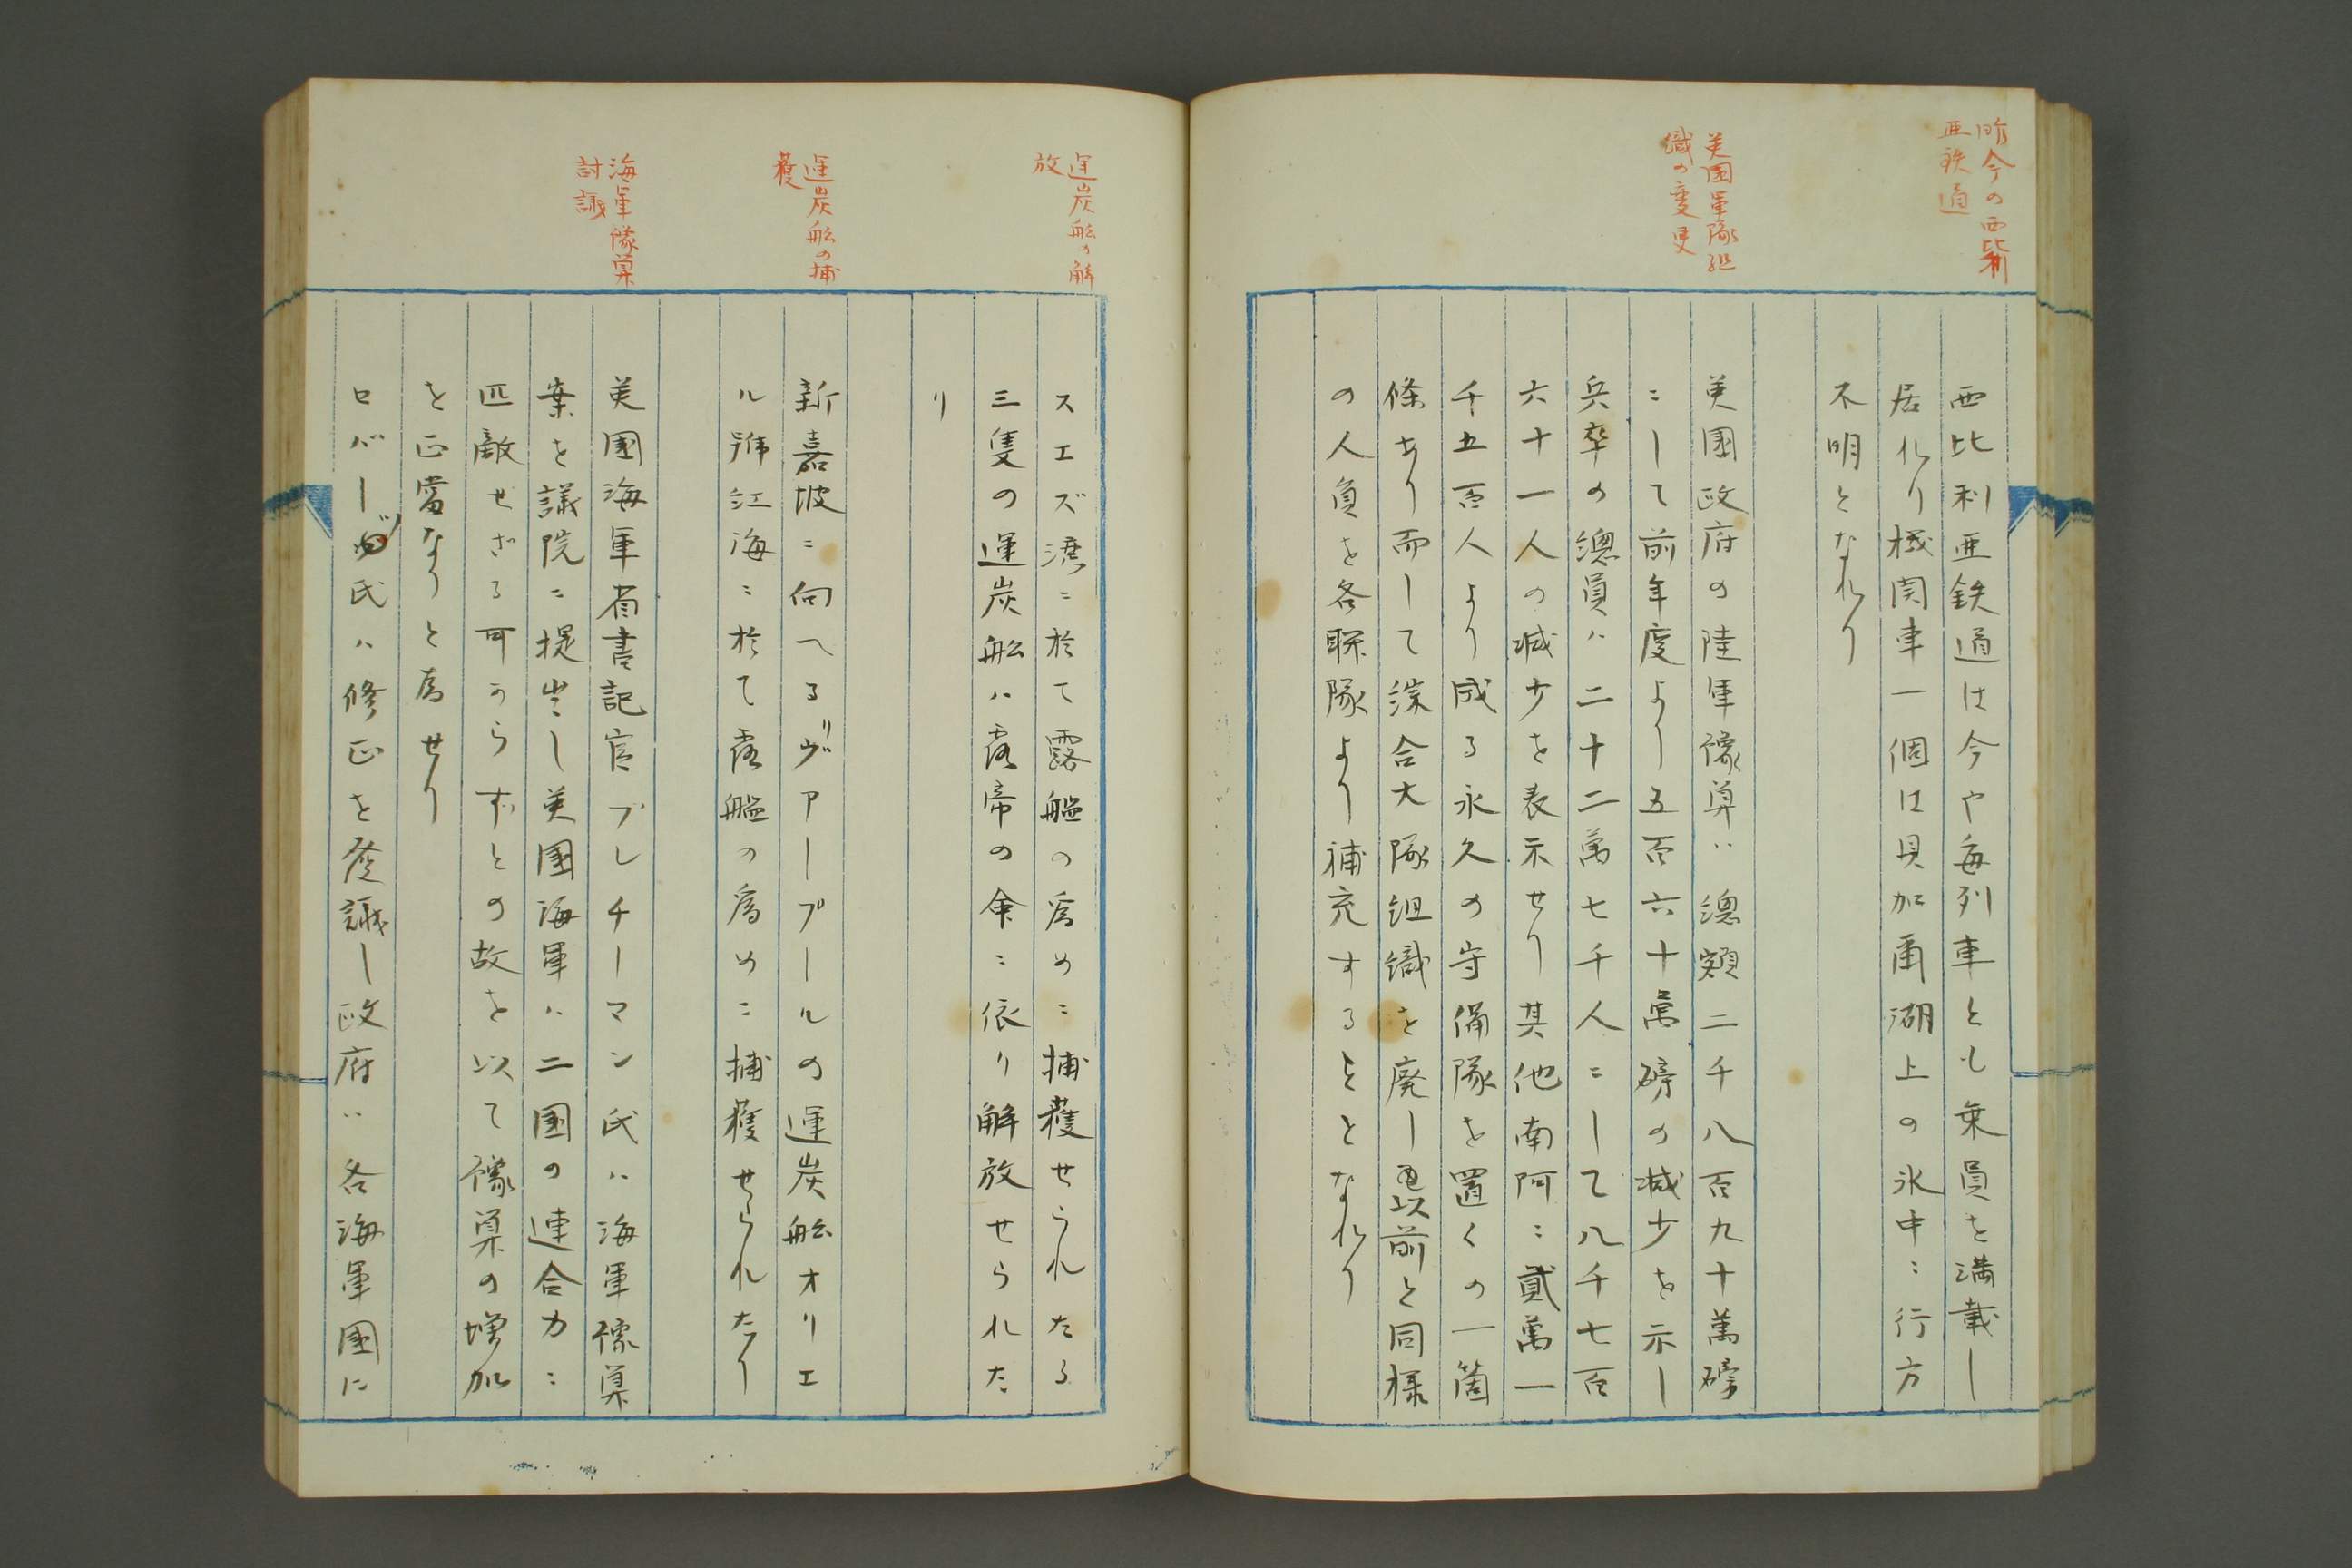 昨今の西比利
亜鉄道
西比利亜鉄道は今や毎列車とも乗員を満載し
居れり機関車一個は貝加爾湖上の氷中ニ行方
不明となれり
英國軍隊組
織の変更
英國政府の陸軍豫算ハ総額二千八百九十萬磅
ニして前年度より五百六十萬磅の減少を示し
兵卒の総員ハ二十二萬七千人ニして八千七百
六十一人の減少を表示せり其他南阿ニ貳萬一
千五百人より成る永久の守備隊を置くの一箇
條あり而して混合大隊組織を廃し以前と同様
の人員を各聯隊より補充することとなれり
運炭船の解
放
スエズ湾ニ於て露艦の為めニ捕獲せられたる
三隻の運炭船ハ露帝の命ニ依り解放せられた
り
運炭船の捕
獲
新嘉坡ニ向へるリヴアープールの運炭船オリエ
ル號江海ニ於て露艦の為めニ捕獲せられたり
海軍豫算
討議
英國海軍省書記官プレチーマン氏ハ海軍豫算
案を議院ニ提出し英國海軍ハ二國の連合力ニ
匹敵せざる可からずとの故を以て豫算の増加
を正当なりと為せり
ロバーヅ氏ハ修正を発議し政府ハ各海軍國に